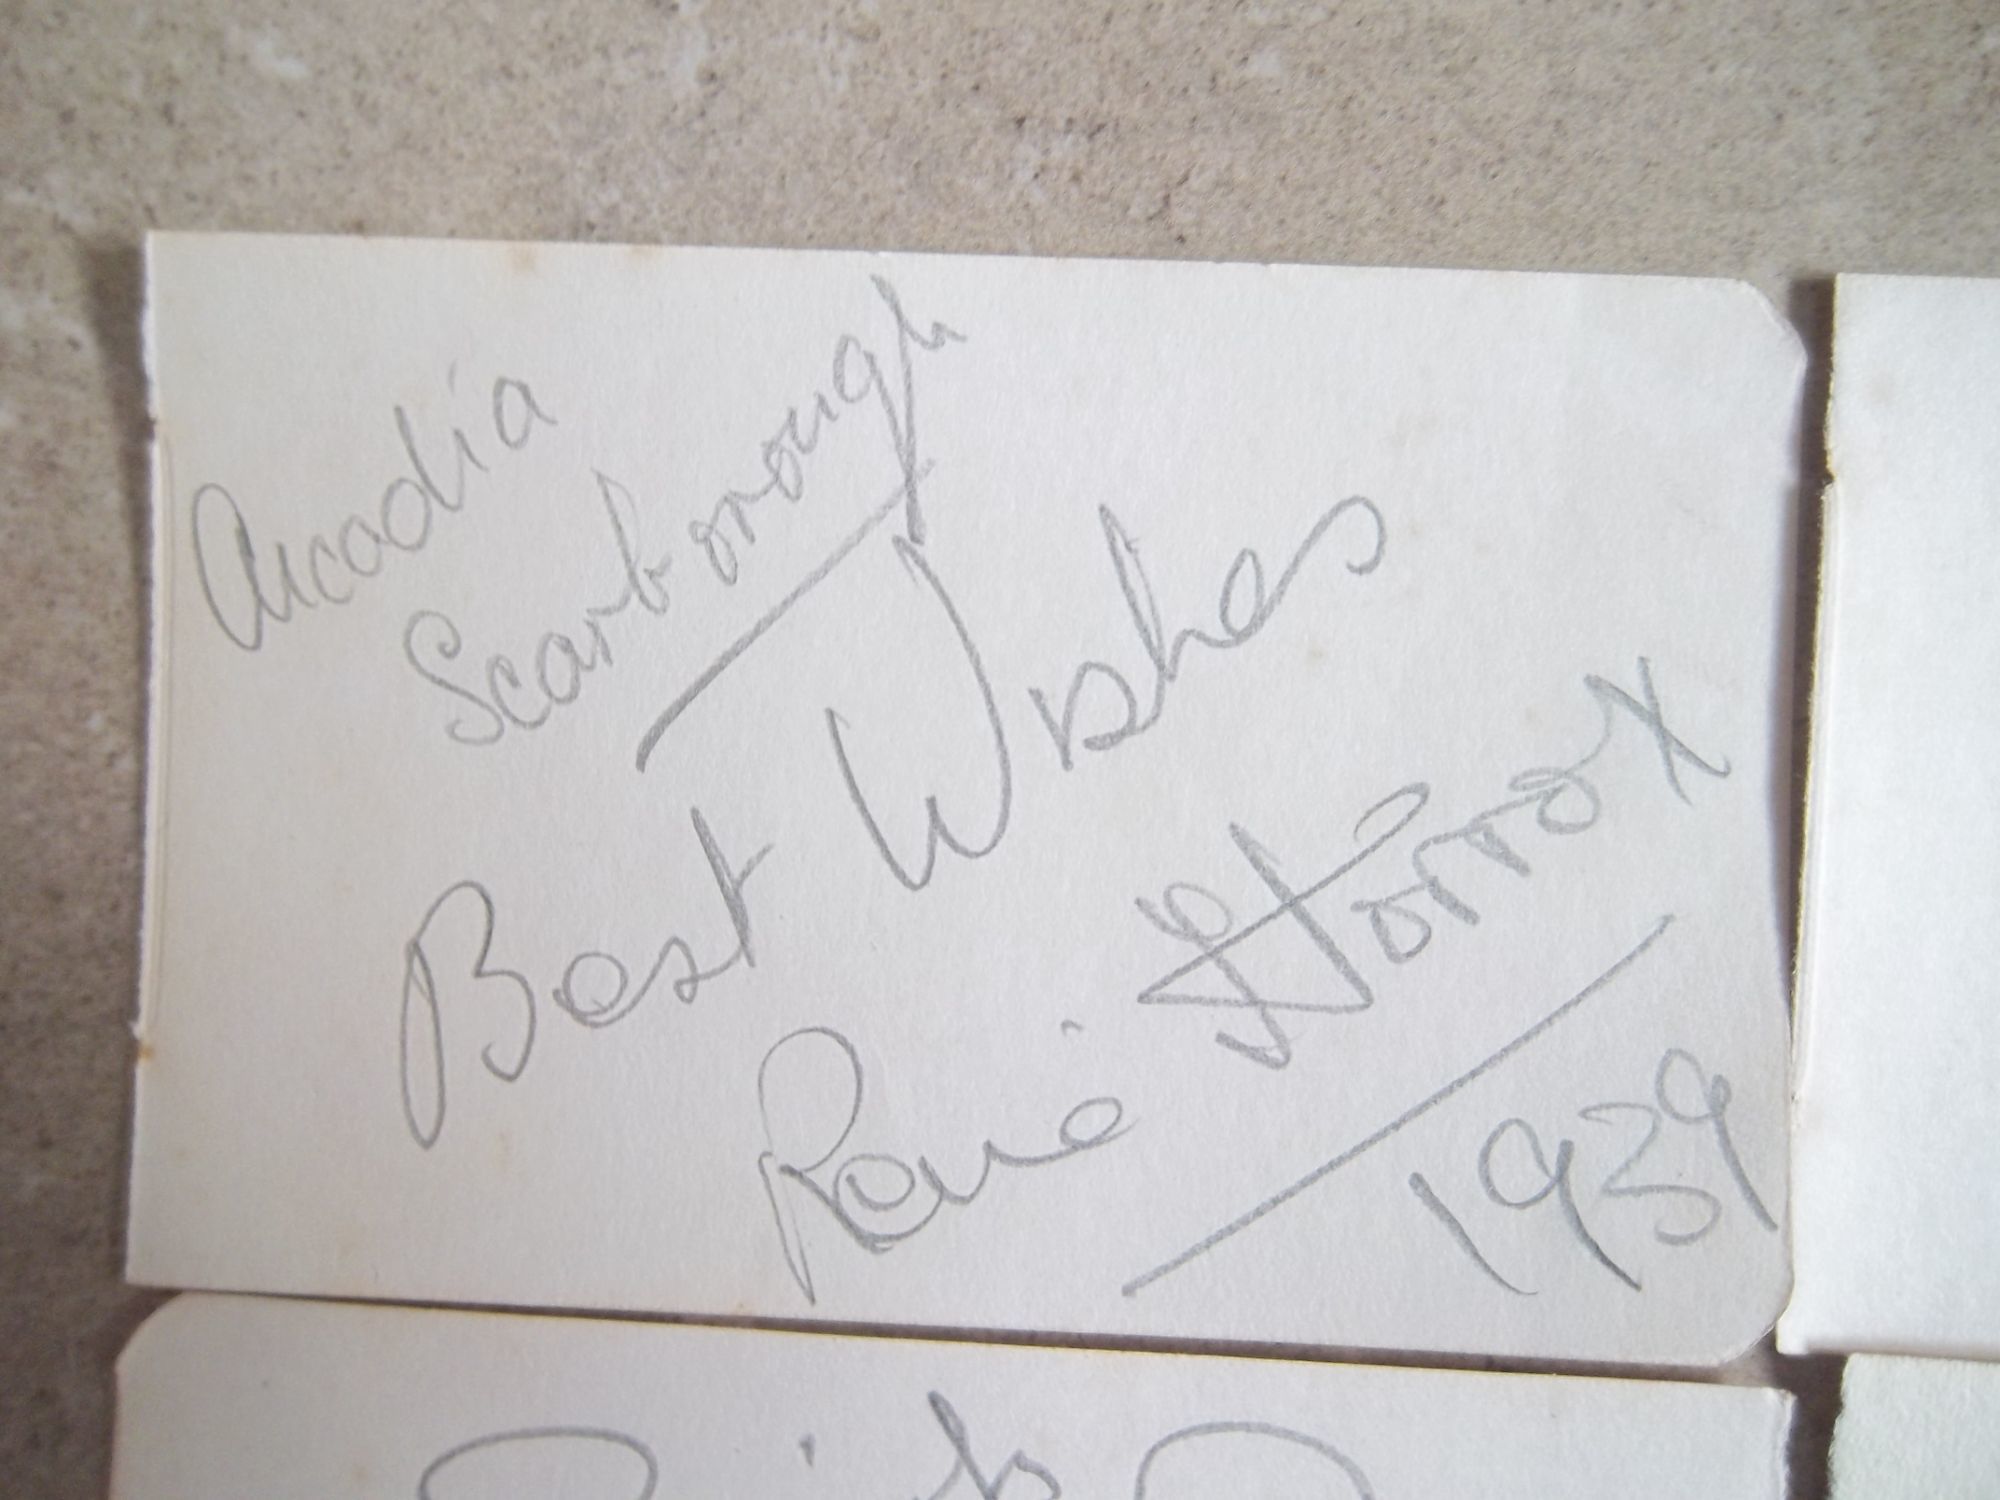 Arcadia
Scarborough
Best Wishes
Renie Storrox
1939